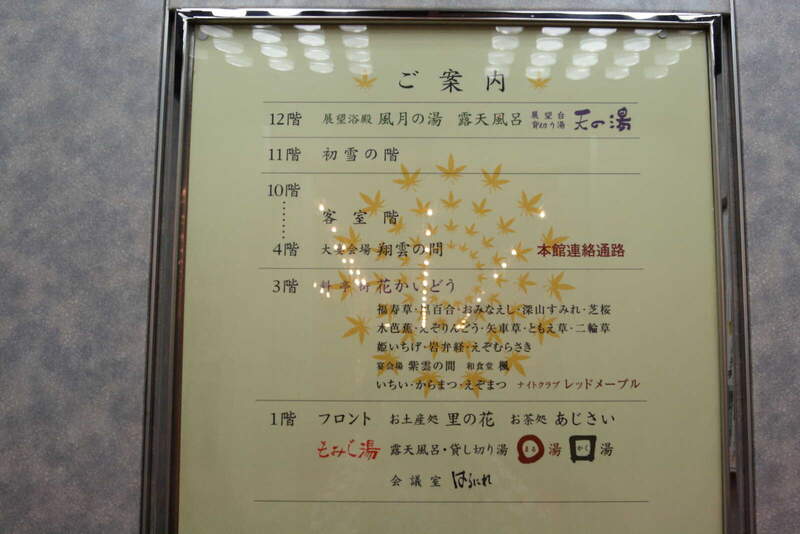 ご案内
12階 展望浴殿 風月の湯 露天風呂 展望台 貸切り湯 天の湯
11階 初雪の階
10階
客室階
4階 大宴会場 翔雲の間 本館連絡通路
3階 料亭街 花かいどう
福寿草・黒百合・おみなえし・深山すみれ・芝桜
水芭蕉・えぞりんどう・矢車草・ともえ草・二輪草
姫いちげ・岩弁経・えぞむらさき
宴会場 紫雲の間 和食堂 楓
いちい・からまつ・えぞまつ ナイトクラブ レッドメープル
1階 フロント お土産処 里の花 お茶処 あじさい
もみじ湯 露天風呂・貸し切り湯 まる 湯 かく 湯
会議室 はるにれ